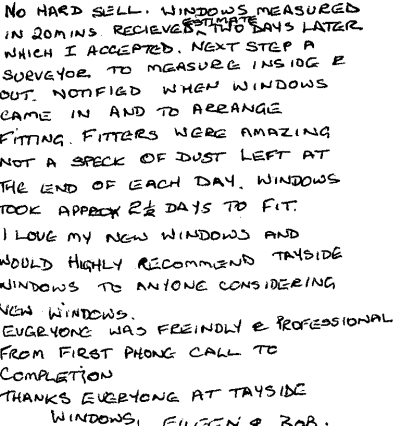 NO HARD SELL. WINDOWS MEASURED
IN 20MINS. RECIEVED ESTIMATE TWO DAYS LATER
WHICH I ACCEPTED. NEXT STEP A
SURVEYOR TO MEASURE INSIDE &
OUT. NOTIFIED WHEN WINDOWS
CAME IN AND TO ARRANGE
FITTING. FITTERS WERE AMAZING
NOT A SPECK OF DUST LEFT AT
THE END OF EACH DAY. WINDOWS
TOOK APPROX 2½ DAYS TO FIT.
I LOVE MY NEW WINDOWS AND
WOULD HIGHLY RECOMMEND TAYSIDE
WINDOWS TO ANYONE CONSIDERING
NEW WINDOWS.
EVERYONE WAS FREINDLY & PROFESSIONAL
FROM FIRST PHONE CALL TO
COMPLETION
THANKS EVERYONE AT TAYSIDE
WINDOWS, EILEEN & BOB.